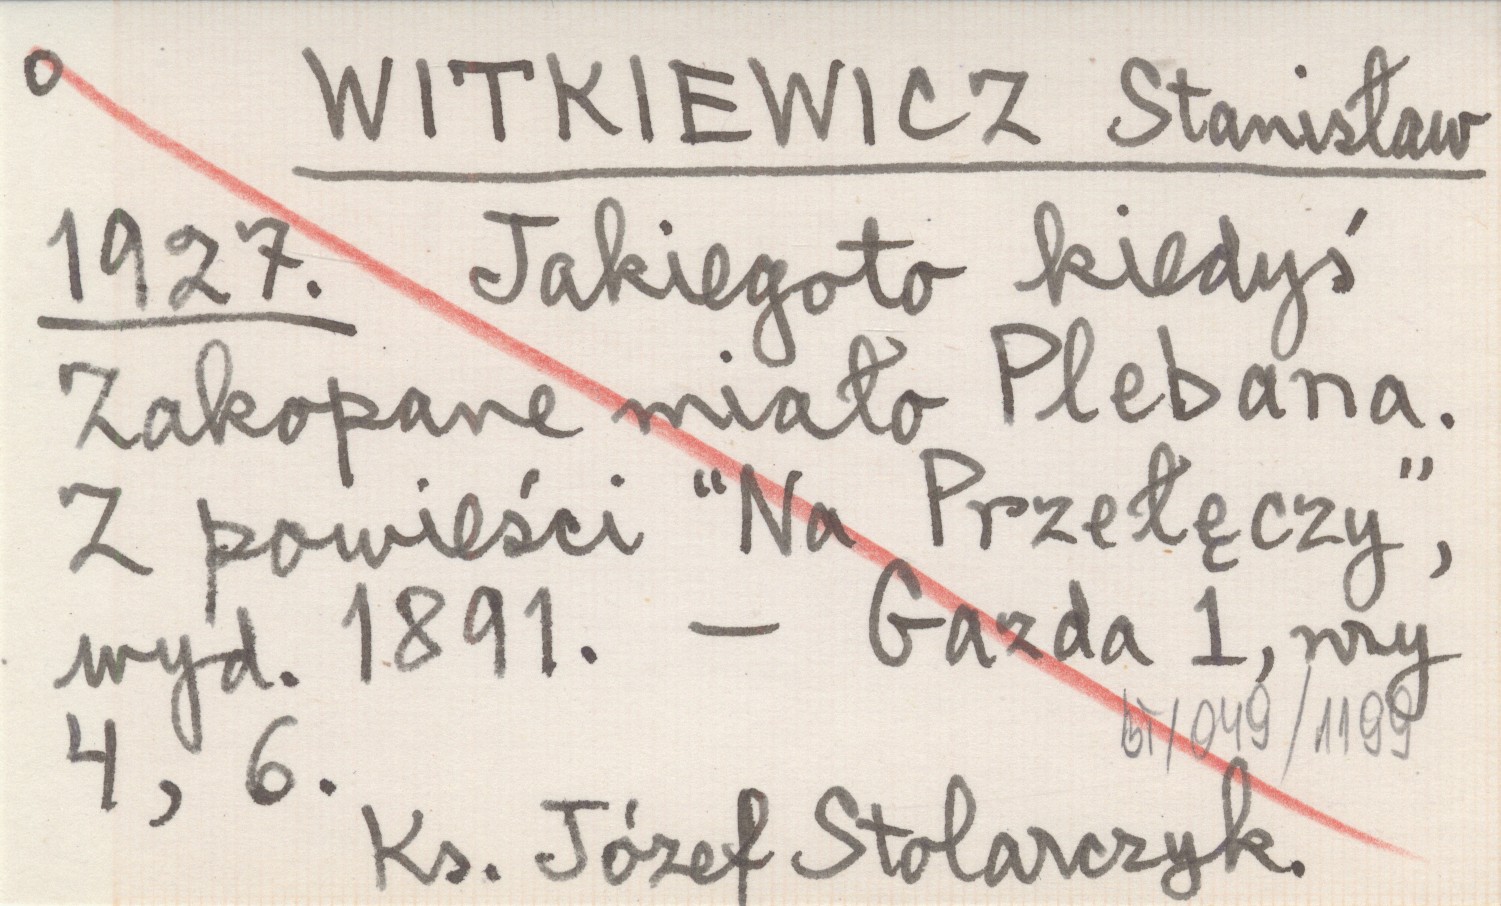 o WITKIEWICZ Stanisław
1927. Jakiegoto kiedyś
Zakopane miało Plebana.
Z powieści “Na Przełęczy”,
wyd. 1891. — Gazda 1, nry
4, 6.
/049/1199
Ks. Józef Stolarczyk.